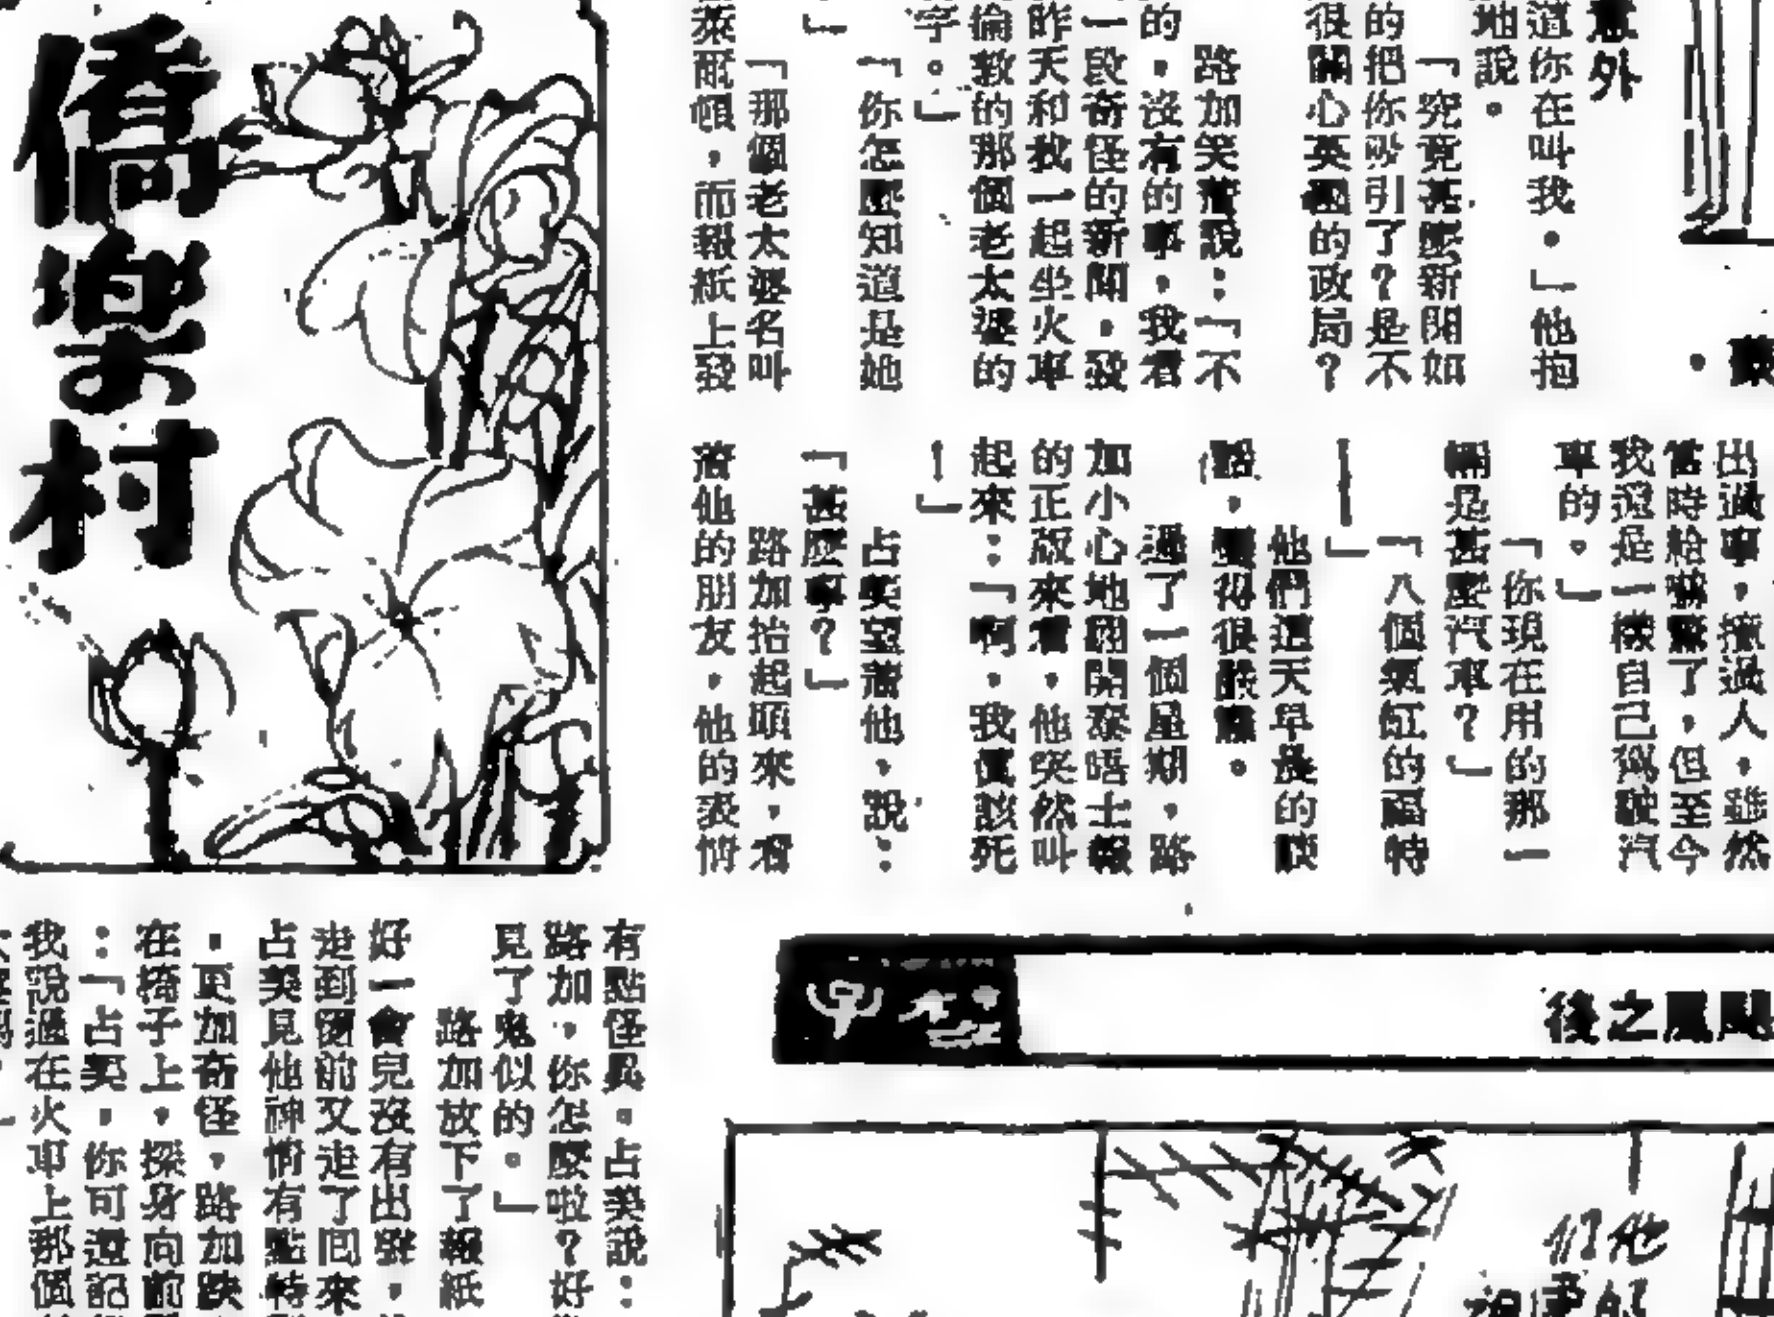 意外
道你在叫我。」他抱
地說。
「究竟甚麼新聞如
的把你吸引了？是不
很關心英國的政局？
路加笑着說：「不
的，沒有的事，我看
一段奇怪的新聞。發
昨天和我一起坐火車
倫敦的那個老太婆的
字。」
「你怎麼知道是她
」
「那個老太婆名叫
萊爾頓，而報紙上發
出過事，撞過人，雖然
當時給嚇壞了，但至今
我還是一樣自己駕駛汽
車的。」
「你現在用的那一
輛是甚麼汽車？」
「八個氣缸的福特
——」
他們這天早晨的談
話，顯得很
過了一個星期，路
加小心地翻開泰晤士報
的正版來看，他突然叫
起來：「啊，我真該死
！」
占美望着他，說：
「甚麼事？」
路加抬起頭來，看
着他的朋友，他的表情
有點怪異。占美說：
路加，你怎麼啦？好
見了鬼似的。」
路加放下了報紙
好一會兒沒有出聲，
走到窗前又走了回來
占美見他神情有點特
，更加奇怪，路加跌
在椅子上，探身向前
：「占美，你可還記
我說過在火車上那個
僑樂村
後之風颶
他
们